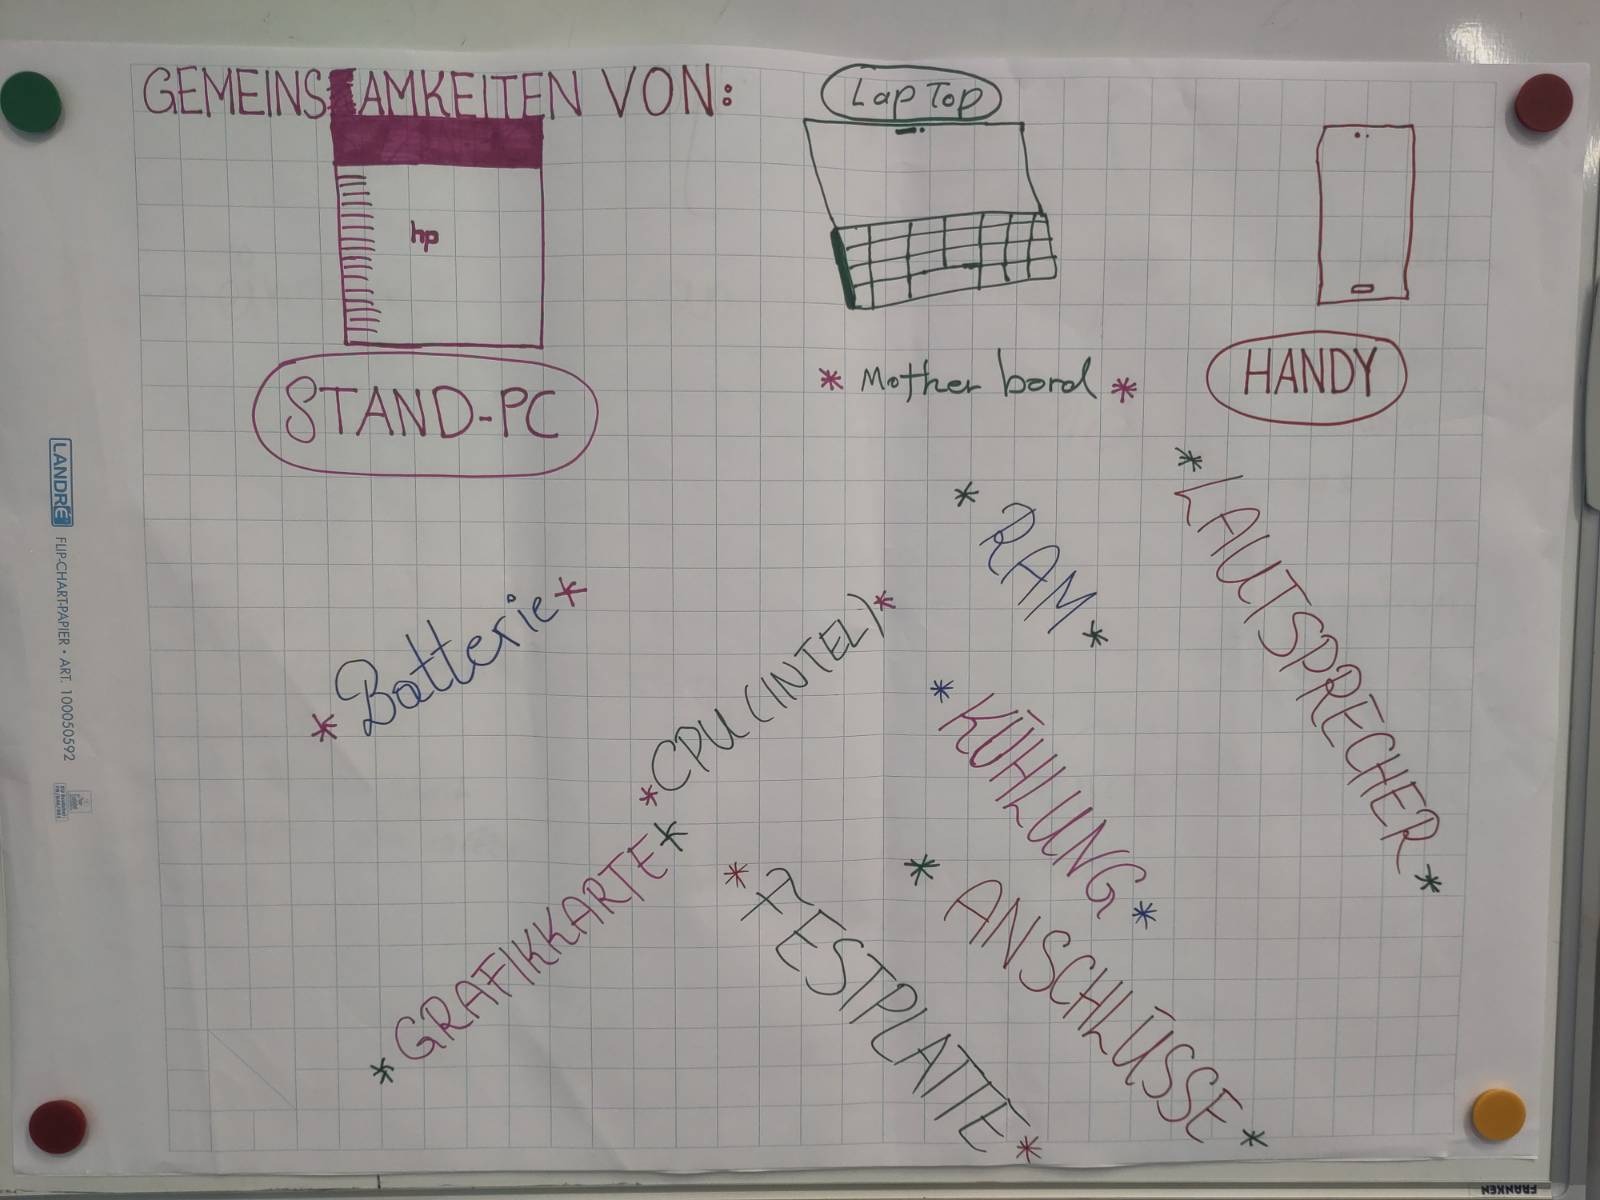 GEMEINSAMKEITEN VON:
Lap Top
hp
STAND-PC
* Mother bord *
HANDY
* LAUTSPRECHER *
* RAM *
* Batterie *
* CPU (INTEL) *
* KÜHLUNG *
* GRAFIKKARTE *
* FESTPLATTE *
* ANSCHLÜSSE *
LANDRÉ FLIP-CHART-PAPIER • ART. 100050592
FRANKEN